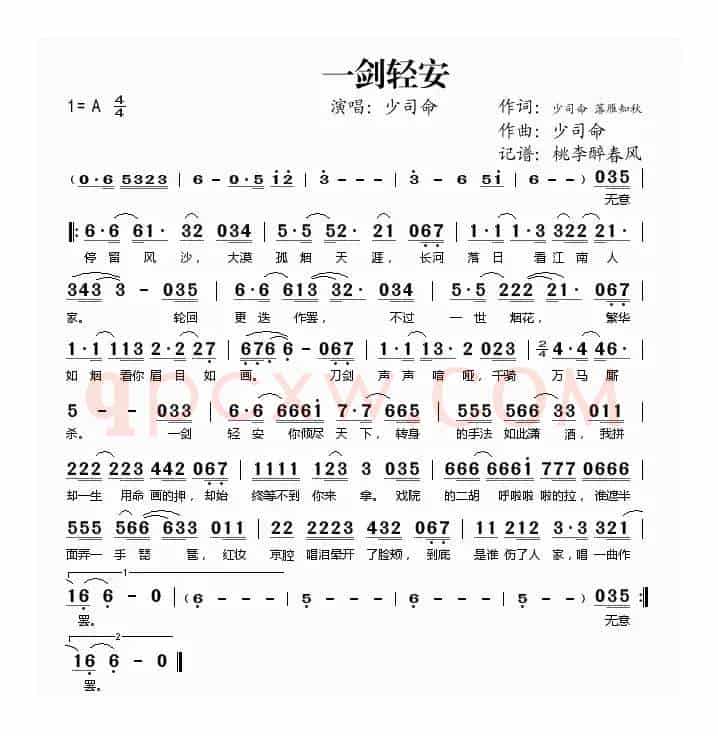 一剑轻安
1= A 4/4 演唱：少司命 作词：少司命 落雁知秋
作曲：少司命
记谱：桃李醉春风
(0·6 5323 | 6 - 0·5 i2 | 3 - - - | 3 - 6 5i | 6 - - -) 035 |
无意
‖: 6·6 61· 32 034 | 5·5 52· 21 067 | 1·1 1·3 322 21· |
停留风沙，大漠孤烟天涯，长河落日看江南人
343 3 - 035 | 6·6 613 32· 034 | 5·5 221 21· 067 |
家。轮回更迭作罢，不过一世烟花，繁华
1·1 113 2·2 27· | 676 6 - 067 | 1·1 13· 2 023 | 2/4 4·4 46· |
如烟看你眉目如画。刀剑声声喑哑，千骑万马厮
5 - - 033 | 6·6 666i 7·7 665 | 555 566 33 011 |
杀。一剑轻安你倾尽天下，转身的手法如此潇洒，我拼
222 223 442 067 | 1111 123 3 035 | 666 666i 777 0666 |
却一生用命画的押，却始终等不到你来拿。戏院的二胡呼啦啦啦的拉，谁遮半
555 566 633 011 | 22 2223 432 067 | 121 212 3·3 321 |
面弄一手琵琶，红妆京腔唱泪晕开了脸颊，到底是谁伤了人家，唱一曲作
1
16 6 - 0 | (6 - - - | 5 - - - | 6 - - - | 5 - -) 035 :‖
罢。无意
2
16 6 - 0 ‖
罢。
qpcxw.com